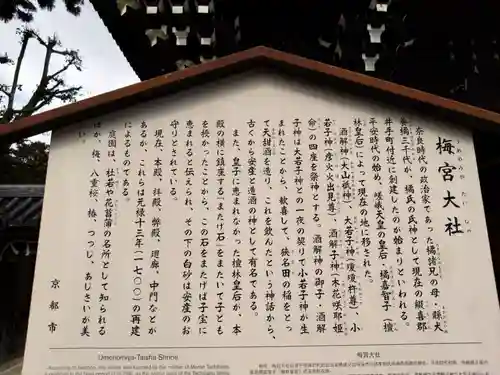 梅宮大社
うめのみや たいしゃ
奈良時代の政治家であった橘諸兄の母・縣犬
養橘三千代が、橘氏の氏神として現在の綴喜郡
井手町付近に創建したのが始まりといわれる。
平安時代の始め、嵯峨天皇の皇后・橘嘉智子（檀
林皇后）によって現在の地に移された。
酒解神（大山祇神）、大若子神（瓊瓊杵尊）、小
若子神（彦火火出見尊）、酒解子神（木花咲耶姫
命）の四座を祭神とする。酒解神の御子・酒解
子神は大若子神との一夜の契りで小若子神が生
まれたことから、歓喜して、狭名田の稲をとっ
て天甜酒を造り、これを飲んだという神話から、
古くから安産と造酒の神として有名である。
また、皇子に恵まれなかった檀林皇后が、本
殿の横に鎮座するまたげ石をまたいで子ども
を授かったことから、この石をまたげば子宝に
恵まれると伝えられ、その下の白砂は安産のお
守りとされている。
現在、本殿、拝殿、弊殿、廻廊、中門などが
あるが、これらは元禄十三年（一七〇〇）の再建
によるものである。
庭園は、杜若や花菖蒲の名所として知られる
ほか、梅、八重桜、椿、つつじ、あじさいが美
しい。
京都市
Umenomiya-Taisha Shrine
梅宮大社